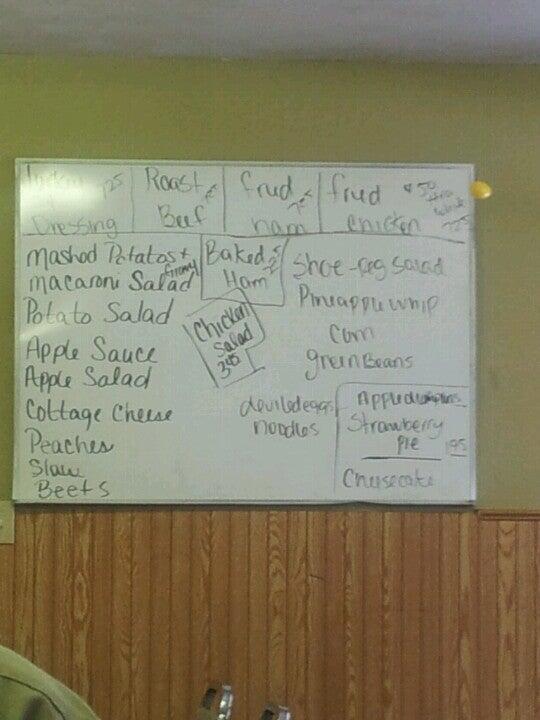 Dressing
Roast
Beef
frud
ham
frud
chicken
Mashod Potatos +
Gravy
macaroni Salad
Potato Salad
Apple Sauce
Apple Salad
Cottage Cheese
Peaches
Slaw
Beets
Baked
Ham
Chicken
Salad
395
Shoe-peg salad
Pineapple whip
Corn
green Beans
deviled eggs
Noodles
Apple dumplins
Strawberry
Pie 195
Cheesecake